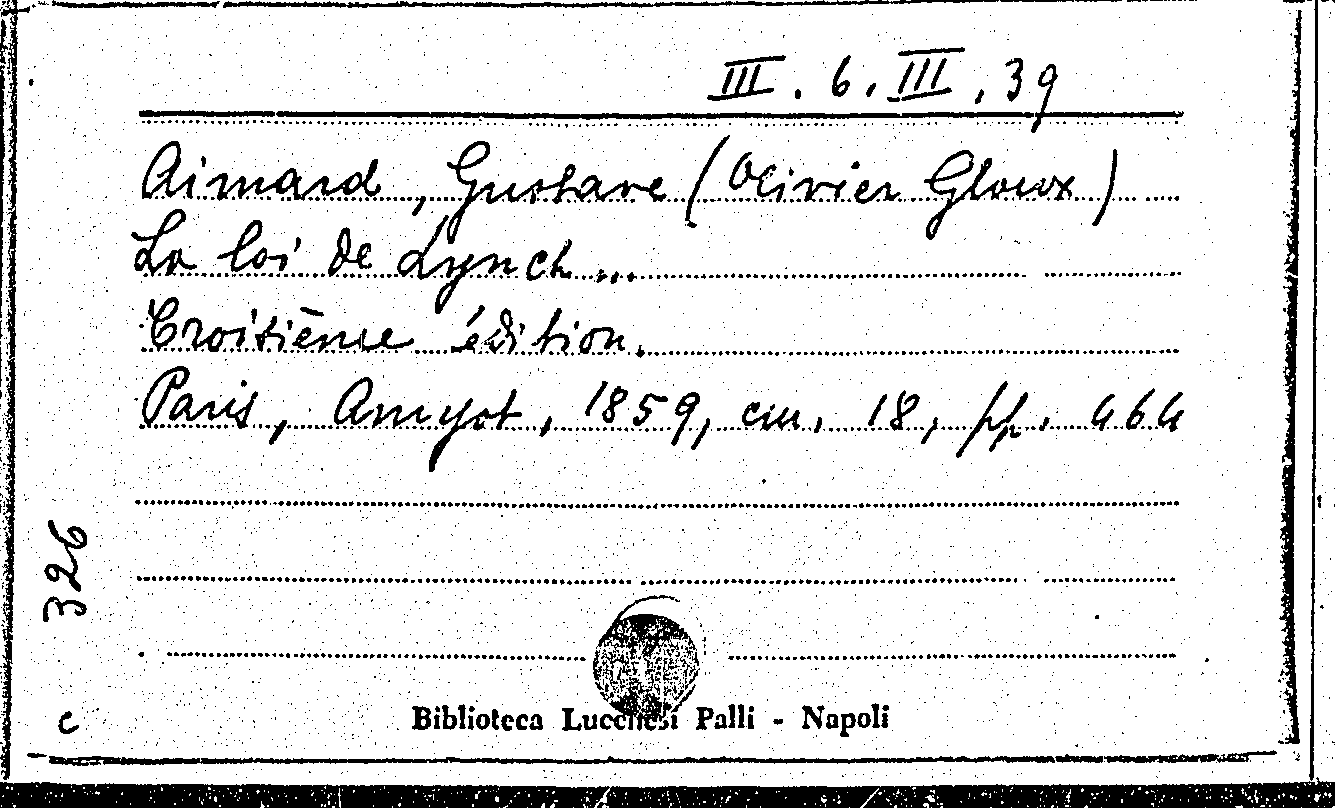 III. 6. III. 39
Aimard, Gustave (Olivier Gloux)
La loi de Lynch ...
Troisième édition.
Paris, Amyot, 1859, cm. 18, pp. 464
326
c
Biblioteca Lucchesi Palli - Napoli